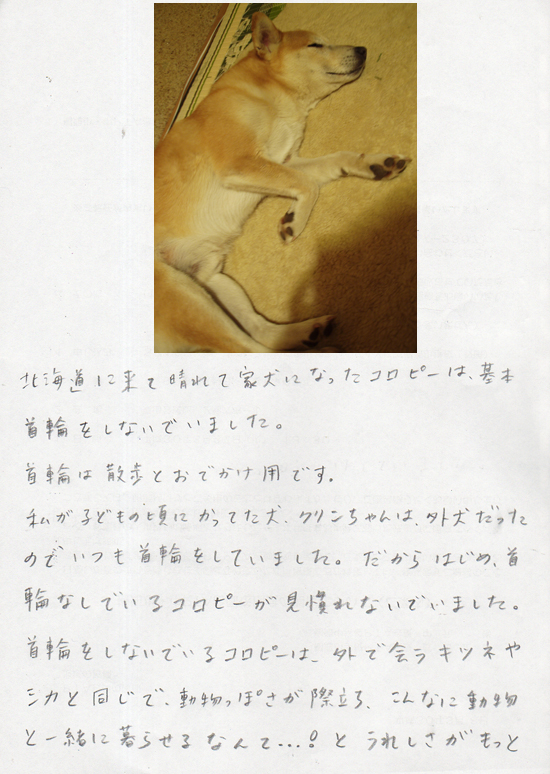 北海道に来て晴れて家犬になったコロピーは、基本
首輪をしないでいました。
首輪は散歩とおでかけ用です。
私が子どもの頃にかってた犬、クリンちゃんは、外犬だった
のでいつも首輪をしていました。だからはじめ、首
輪なしでいるコロピーが見慣れないでいました。
首輪をしないでいるコロピーは、外で会うキツネや
シカと同じで、動物っぽさが際立ち、こんなに動物
と一緒に暮らせるなんて…!とうれしさがもっと